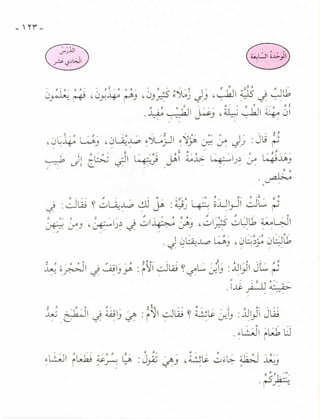 - ١٢٣ -
الوَحْدَةُ السَّابِعَة
الدَّرْسُ
الحَادِي عَشَر
طَالِبٌ فِي كُلِّيَّةِ الطِّبِّ، وَلِي زُمَلَاءُ كَثِيرُونَ، وَهُمْ مُهَذَّبُونَ، فَهُمْ يَعْلَمُونَ
أَنَّ مِهْنَةَ الطِّبِّ نَبِيلَةٌ، وَعَمَلَ الطَّبِيبِ مُفِيدٌ.
ثُمَّ قَالَ: لِي مِنْ بَيْنِ هَؤُلَاءِ الزُّمَلَاءِ صَدِيقَانِ، وَهُمَا مُهَذَّبَانِ،
وَهَدَفُهُمَا مِنْ دِرَاسَتِهِمَا خِدْمَةُ أَهْلِ قَرْيَتِهِمَا الَّتِي تَحْتَاجُ إِلَى طَبِيبٍ
مُخْلِصٍ.
ثُمَّ سَأَلَتِ الْوَالِدَةُ بِنْتَهَا رُقَيَّةَ: هَلْ لَكِ صَدِيقَاتٌ؟ فَقَالَتْ: فِي
الْجَامِعَةِ طَالِبَاتٌ كَثِيرَاتٌ، وَهُنَّ مُجْتَهِدَاتٌ فِي دِرَاسَتِهِنَّ، وَمِنْ بَيْنِهِنَّ
طَالِبَتَانِ مُؤَدَّبَتَانِ، وَهُمَا صَدِيقَتَانِ لِي.
ثُمَّ سَأَلَ الْوَالِدُ: وَأَيْنَ سَامِي؟ فَقَالَتِ الْأُمُّ: هُوَ وَاقِفٌ فِي الْحُجْرَةِ يُعِدُّ
حَقِيبَتَهُ لِلسَّفَرِ غَداً.
فَقَالَ الْوَالِدُ: وَأَيْنَ عَائِشَةُ؟ فَقَالَتِ الْأُمُّ: هِيَ وَاقِفَةٌ فِي الْمَطْبَخِ تُعِدُّ
لَنَا طَعَامَ الْعَشَاءِ.
وَبَعْدَ لَحْظَةٍ جَاءَتْ عَائِشَةُ، وَهِيَ تَقُولُ: هَيَّا بِسُرْعَةٍ فَطَعَامُ الْعَشَاءِ
يَنْتَظِرُكُمْ.